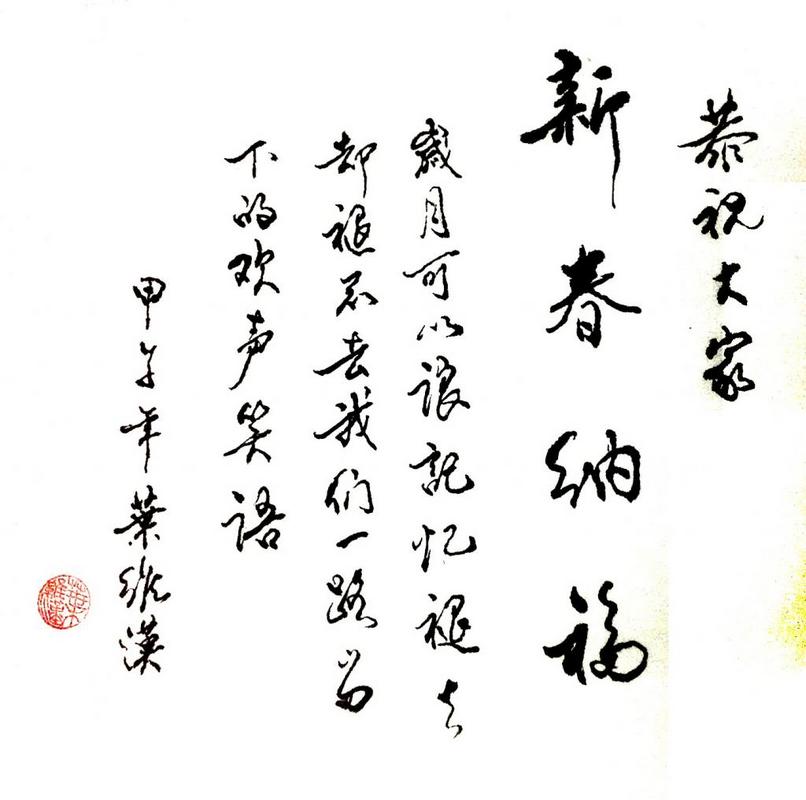 恭祝大家
新春纳福
歲月可以讓記忆褪去
却褪不去我们一路留
下的欢声笑語
甲午年葉维漢